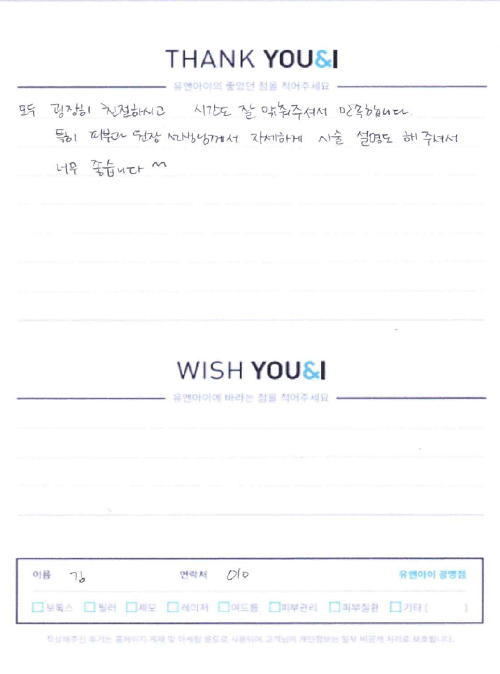 THANK YOU&I
유앤아이의 좋았던 점을 적어주세요
모두 굉장히 친절하시고 시간도 잘 맞춰주셔서 만족합니다.
특히 피부과 원장 선생님께서 자세하게 시술 설명도 해 주셔서
너무 좋습니다 ^^
WISH YOU&I
유앤아이에 바라는 점을 적어주세요
이름 김 연락처 010 유앤아이 광명점
보톡스 필러 제모 레이저 여드름 피부관리 피부질환 기타 ( )
작성해주신 후기는 홈페이지 게재 및 마케팅 용도로 사용되며 고객님의 개인정보는 일부 비공개 처리로 보호됩니다.